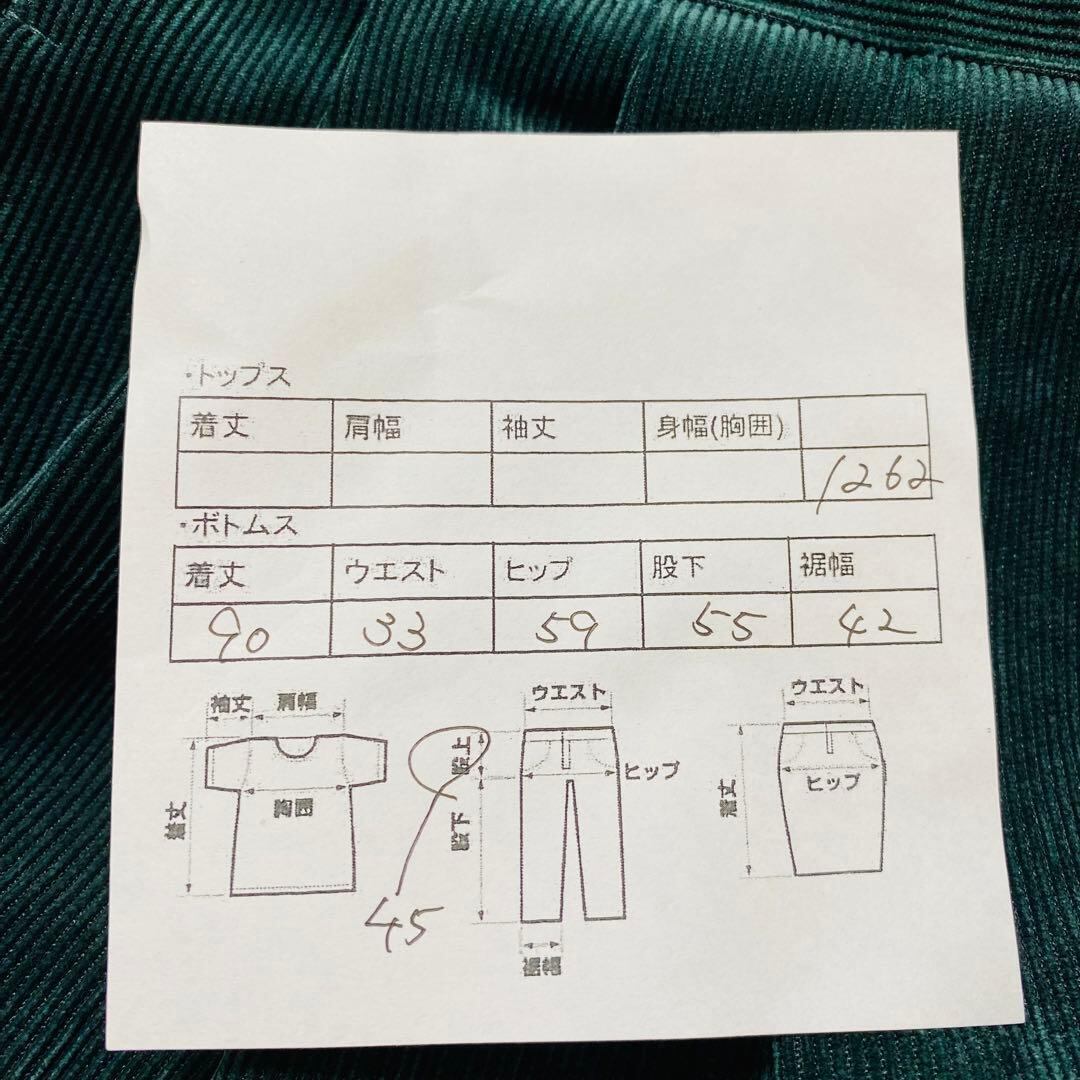 ・トップス
着丈 肩幅 袖丈 身幅(胸囲)
1262
・ボトムス
着丈 ウエスト ヒップ 股下 裾幅
90 33 59 55 42
袖丈 肩幅
着丈
胸囲
ウエスト
股上
ヒップ
股下
裾幅
45
ウエスト
着丈
ヒップ